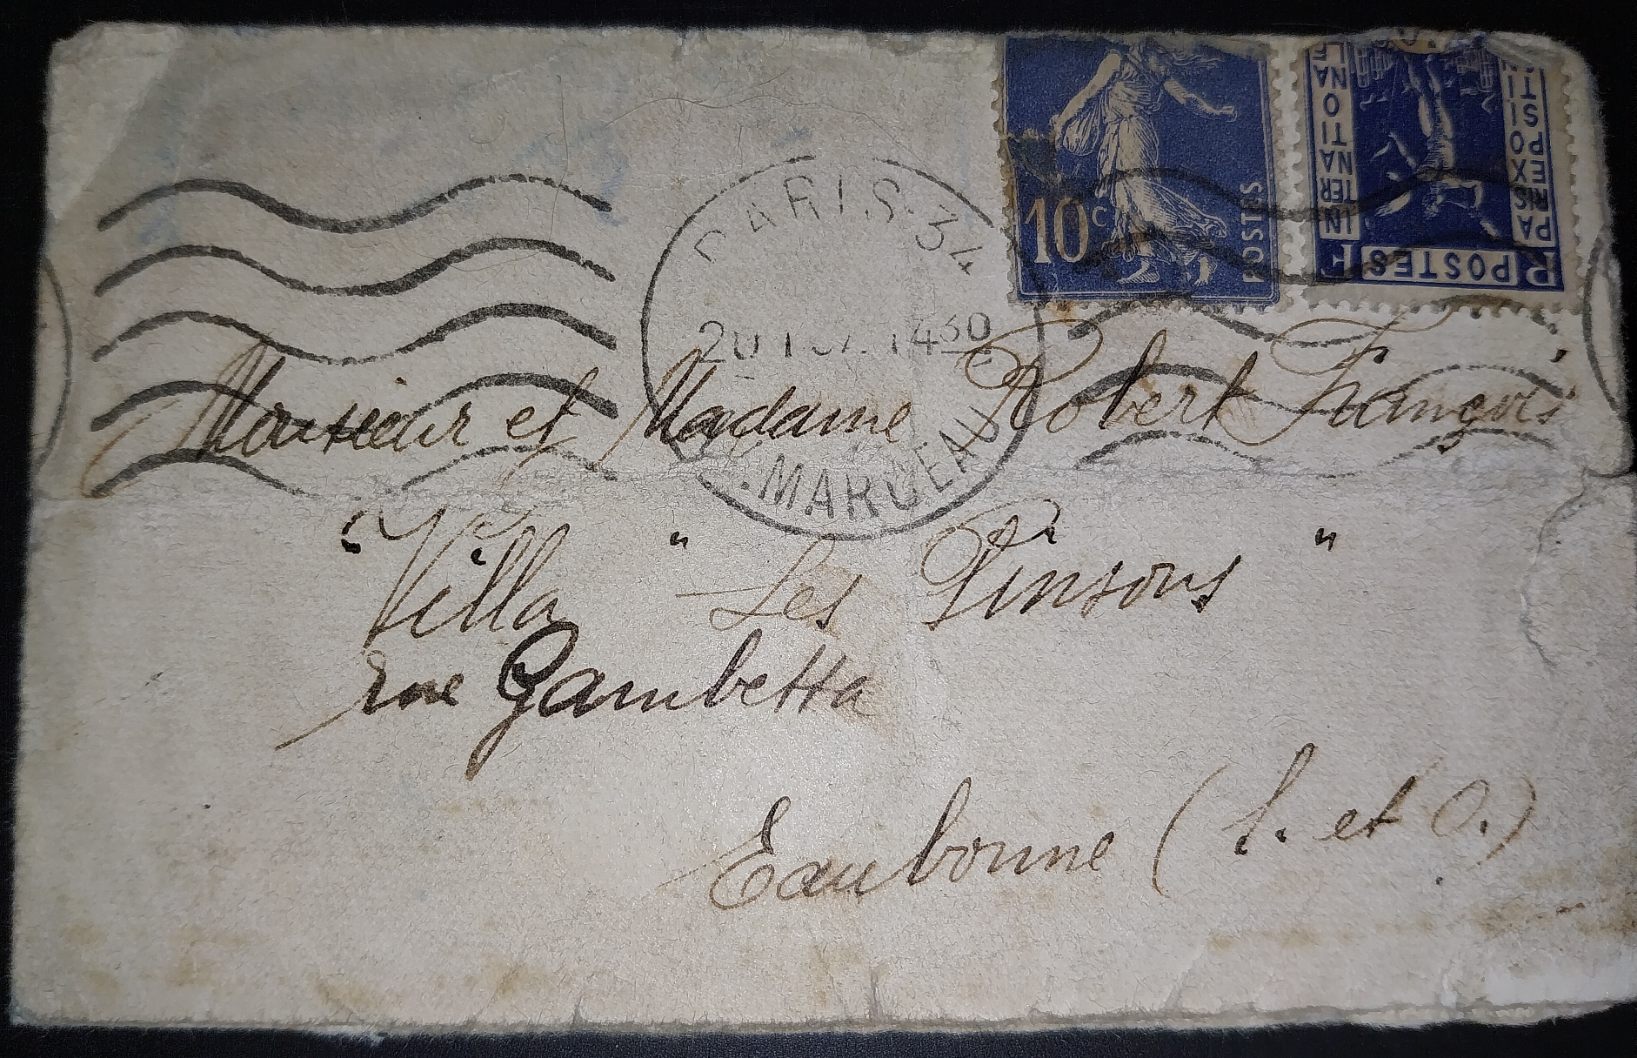 10c
POSTES
PARIS EXPOSITION INTERNATIONALE
POSTES
PARIS·34
1430
MARCEAU
Monsieur et Madame Robert François
Villa " Les Pinsons "
rue Gambetta
Eaubonne (S. et O.)